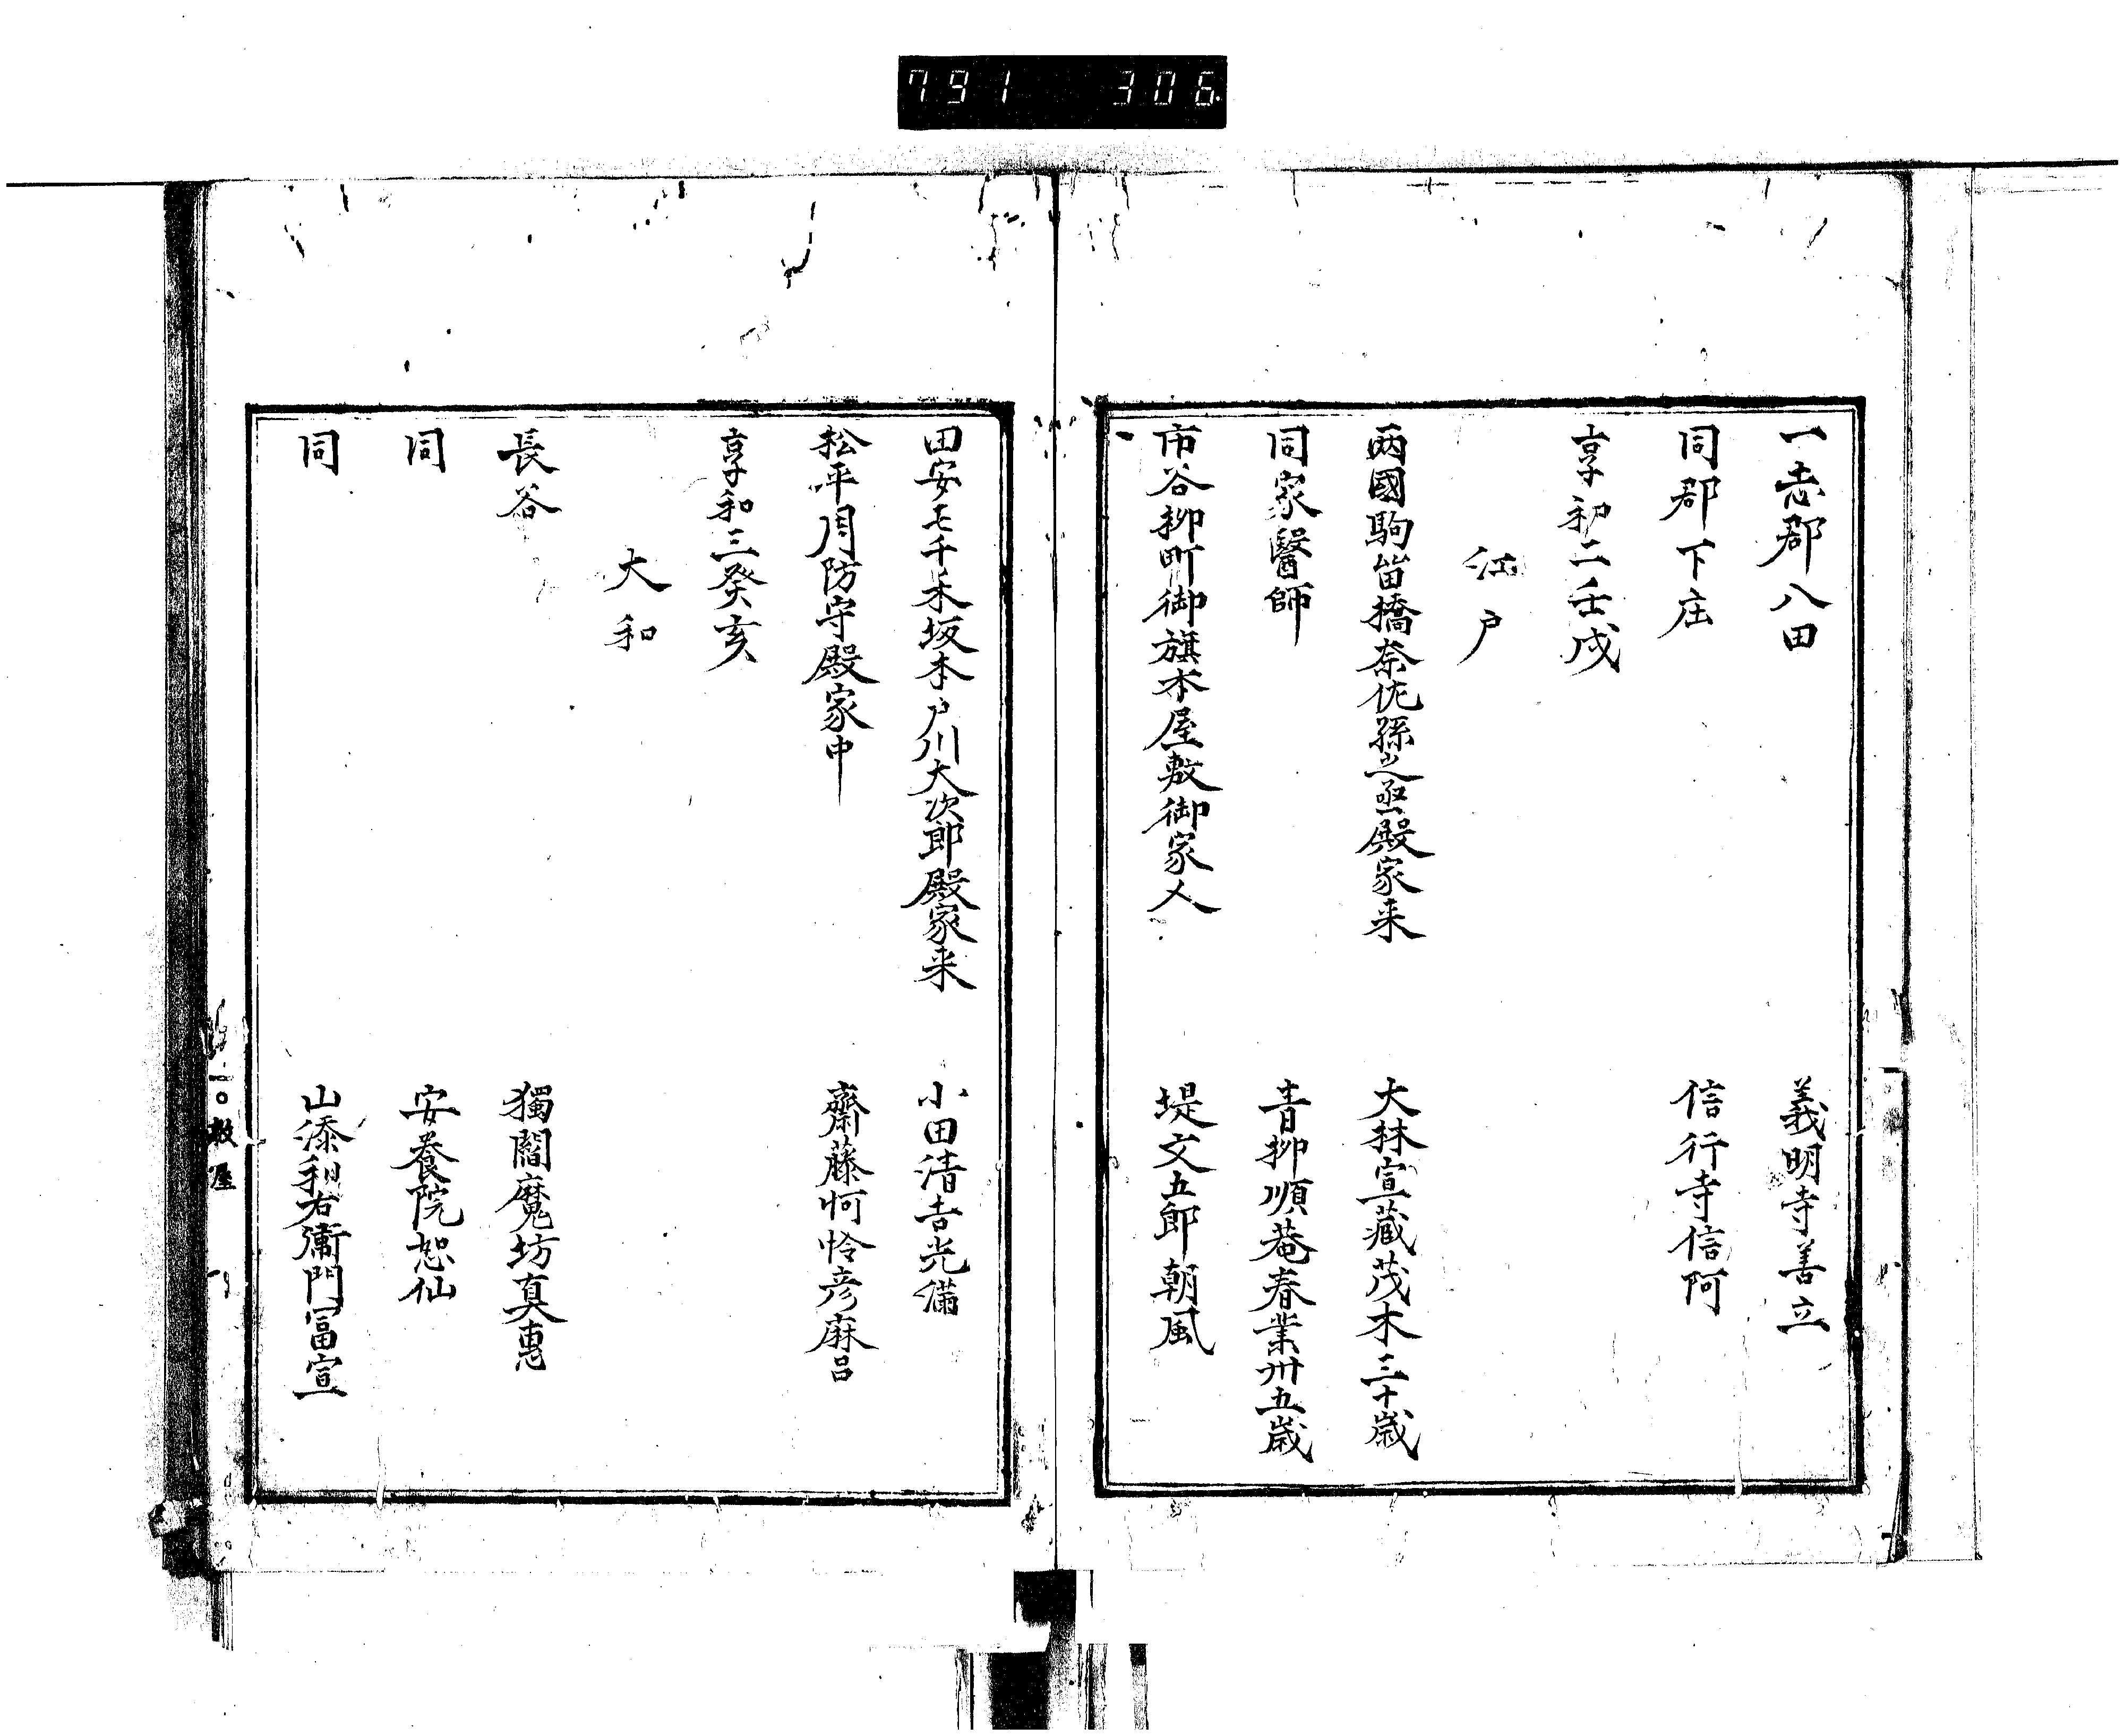 791 306
一志郡八田 義明寺善立
同郡下庄 信行寺信阿
享和二壬戌
江戸
両國駒留橋奈佐孫之丞殿家来 大林宣蔵茂木三十歳
同家醫師 青柳順菴春業卅五歳
市谷柳町御旗本屋敷御家人 堤文五郎朝風
田安七千禾坂本戸川大次郎殿家来 小田清吉光備
松平周防守殿家中 齋藤怜彦麻呂
享和三癸亥
大和
長谷 獨閻魔坊真惠
同 安養院恕仙
同 山添利右衛門冨宣